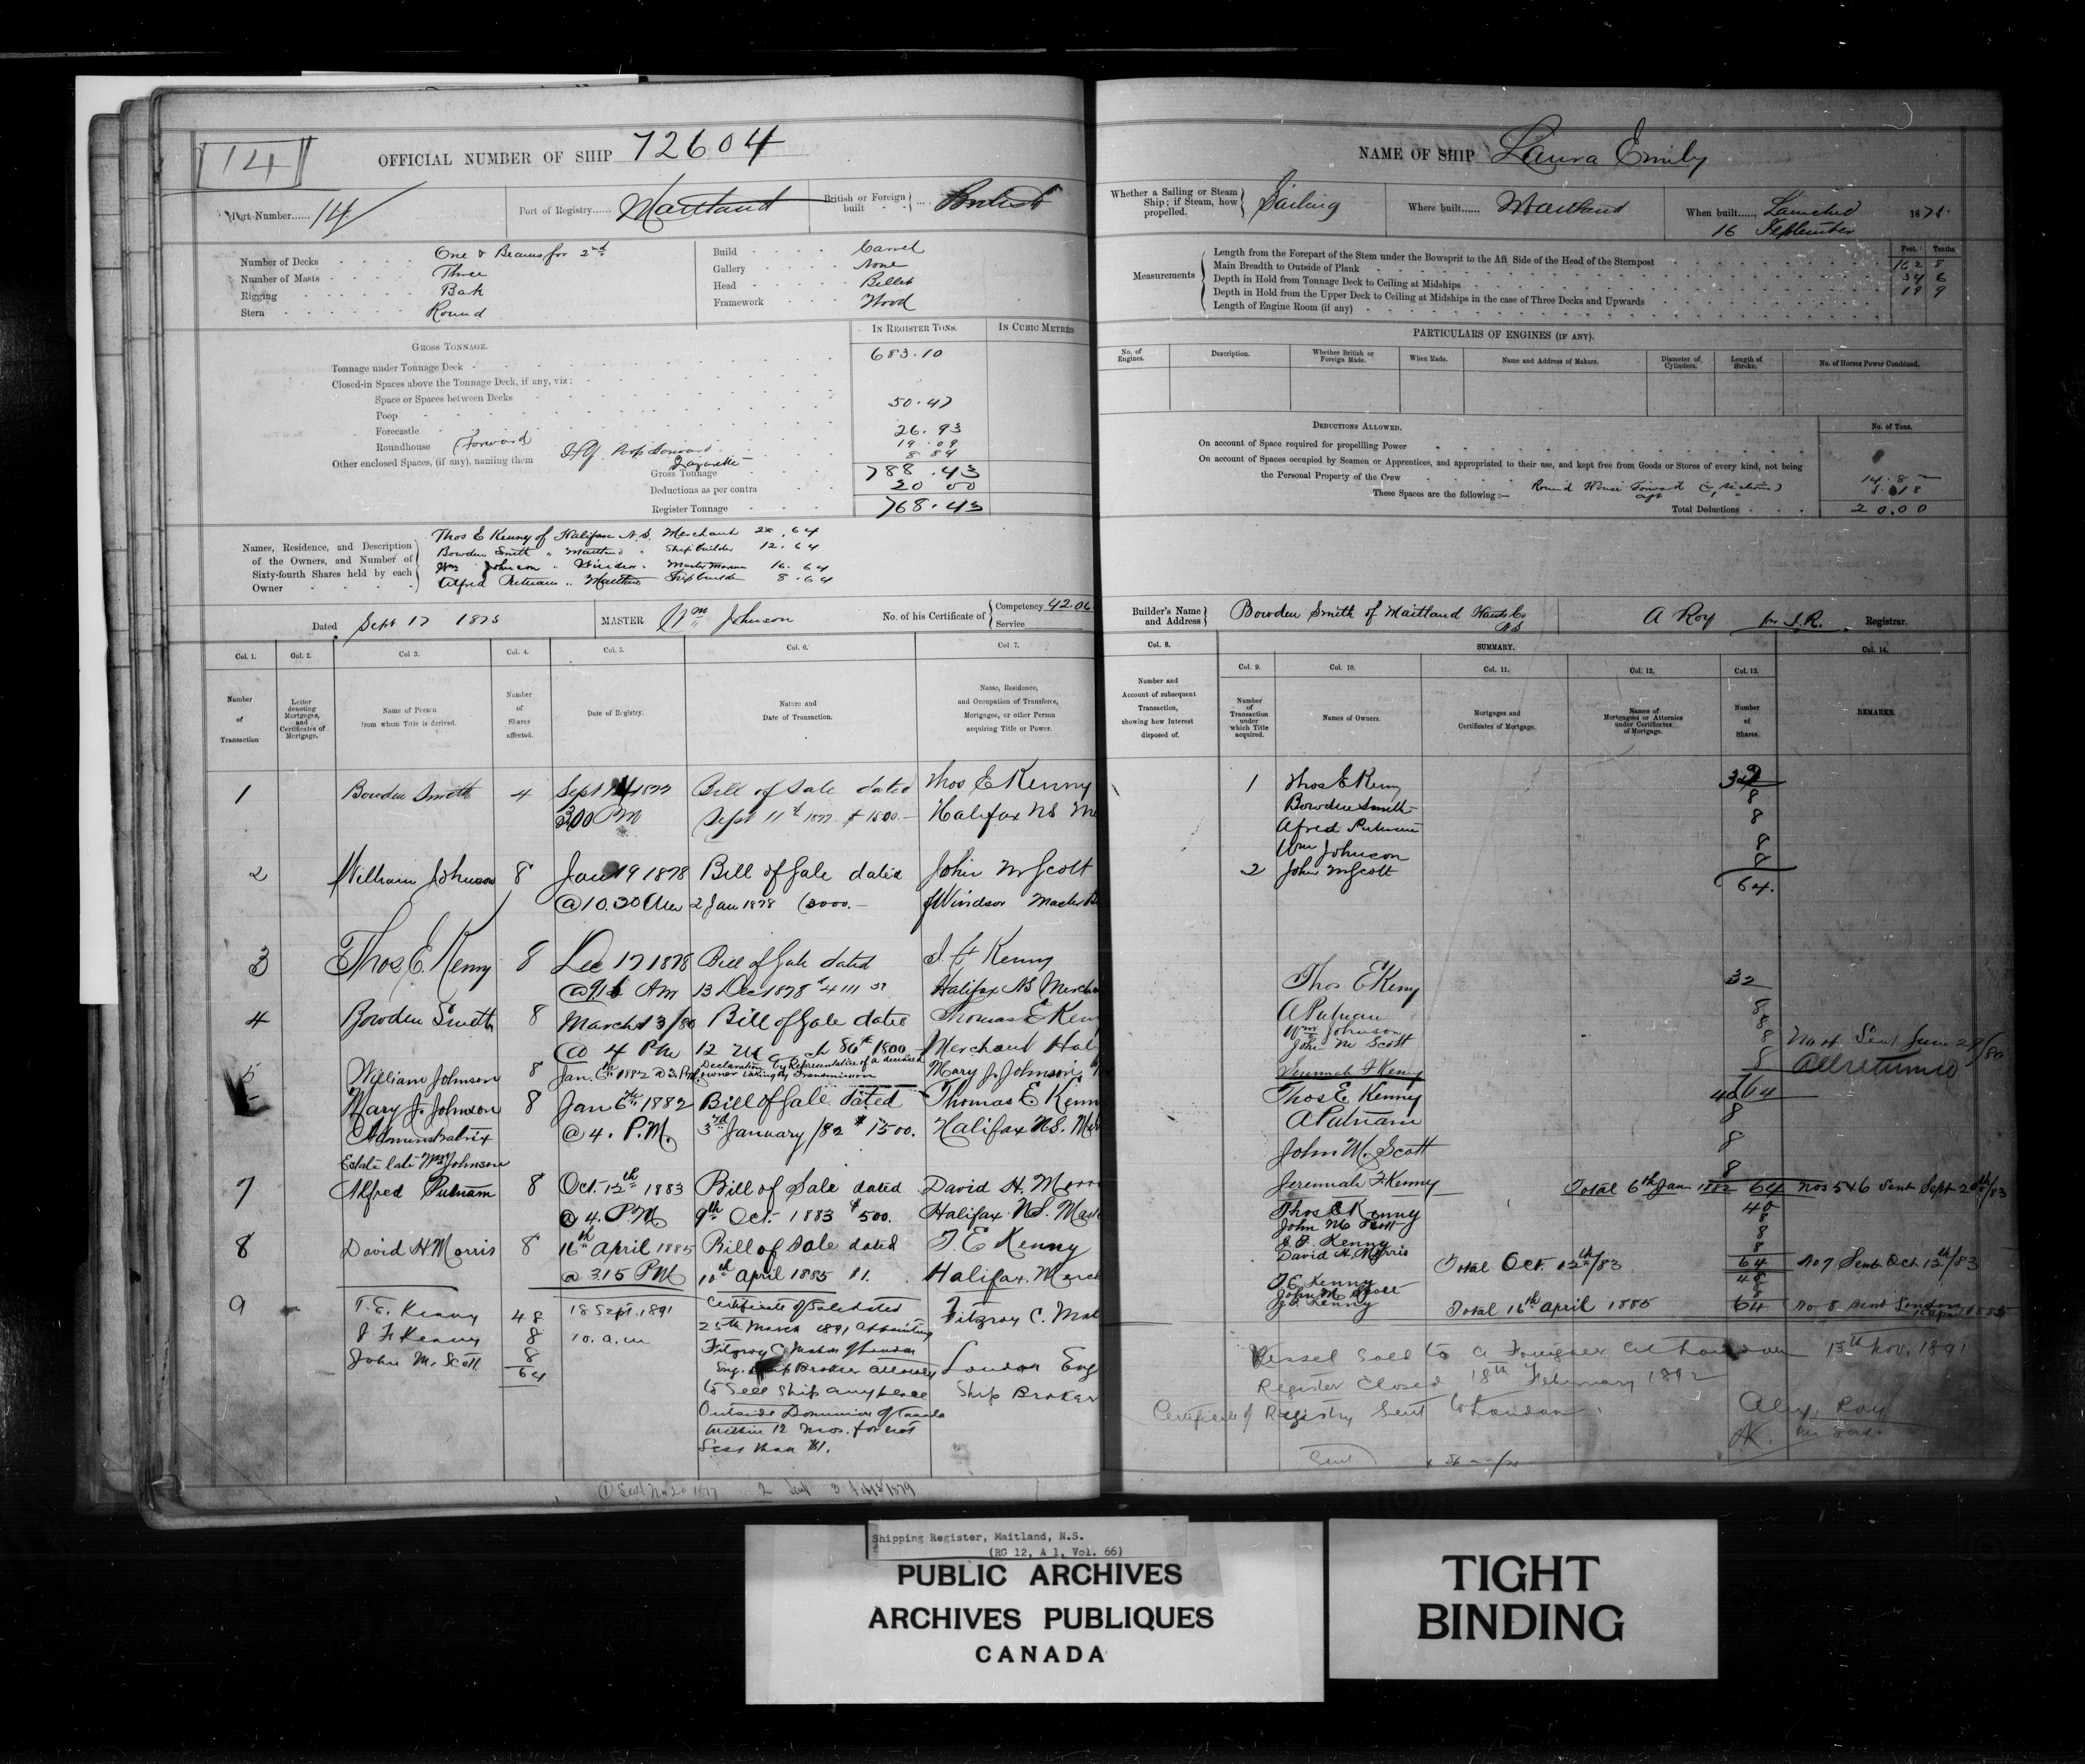 14
OFFICIAL NUMBER OF SHIP 72604
Port Number...... 14
Port of Registry...... Maitland
British or Foreign built British
Number of Decks One & Beams for 2nd
Number of Masts Three
Rigging Bark
Stern Round
Build Carvel
Gallery None
Head Billet
Framework Wood
IN REGISTER TONS.
IN CUBIC METRES
GROSS TONNAGE.
Tonnage under Tonnage Deck 683.10
Closed-in Spaces above the Tonnage Deck, if any, viz:
Space or Spaces between Decks
Poop 50.47
Forecastle
Roundhouse (Forward 26.93
Other enclosed Spaces, (if any), naming them
19.09
Lazarette 8.84
Gross Tonnage 788.43
Deductions as per contra 20 00
Register Tonnage 768.43
Names, Residence, and Description of the Owners, and Number of Sixty-fourth Shares held by each Owner
Thos E Kenny of Halifax N.S. Merchant 28.64
Bowden Smith " Maitland " Shipbuilder 12.64
Wm Johnson " Windsor " Master Mariner 16.64
Alfred Putnam " Maitland Shipbuilder 8.64
Dated Sept 17 1875
MASTER Wm Johnson
No. of his Certificate of
Competency
Service
Col. 1.
Col. 2.
Col 3.
Col. 4.
Col. 5.
Col. 6.
Col. 7.
Number of Transaction
Letter denoting Mortgages, and Certificates of Mortgage.
Name of Person from whom Title is derived.
Number of Shares affected.
Date of Registry.
Nature and Date of Transaction.
Name, Residence, and Occupation of Transferee, Mortgagee, or other Person acquiring Title or Power.
1 Bowden Smith 4 Sept 1877 Bill of Sale dated Thos E Kenny
300 PM Sept 11th 1877 $1600.— Halifax NS
2 William Johnson 8 Jan 19 1878 Bill of Sale dated John M Scott
@ 10.30 AM 2 Jan 1878 Windsor Master
3 Thos E Kenny 8 Dec 17 1878 Bill of Sale dated J. F Kenny
AM 13 Dec 1878 Halifax NS Mercha
4 Bowden Smith 8 March 13/80 Bill of Sale dated Thomas E Ken
@ 4 PM 12 1800 Merchant Hal
5 William Johnson 8 Jan. 1882 @ 3 PM Declaration by Representative of a deceased owner taking by Transmission Mary J. Johnson
Mary J. Johnson 8 Jan 6th 1882 Bill of Sale dated Thomas E Kenn
Administratrix @ 4. P.M. 3rd January/82 $1500. Halifax NS.
Estate late Wm Johnson
7 Alfred Putnam 8 Oct. 12th 1883 Bill of Sale dated David H. Morr
@ 4. P.M 9th Oct. 1883 $500. Halifax NS.
8 David H Morris 8 16th April 1885 Bill of Sale dated T. E Kenny
@ 3.15 PM 10th April 1885 $1. Halifax. Merch
9 T. E. Kenny 48 18 Sept. 1891 Certificate of Sale dated Fitzroy C.
J F Kenny 8 10. a.m 25th March 1891 appointing
John M. Scott 8 Fitzroy C of London
64 Eng. Ship Broker attorney London Eng
to sell ship any place Ship Broker
Outside Dominion of Canada
within 12 mos. for not
Less than $1.
NAME OF SHIP Laura Emily
Whether a Sailing or Steam Ship; if Steam, how propelled. Sailing
Where built...... Maitland
When built...... Launched 16 September 187
Measurements
Feet. Tenths
Length from the Forepart of the Stem under the Bowsprit to the Aft Side of the Head of the Sternpost 162 8
Main Breadth to Outside of Plank 34 6
Depth in Hold from Tonnage Deck to Ceiling at Midships 19 9
Depth in Hold from the Upper Deck to Ceiling at Midships in the case of Three Decks and Upwards
Length of Engine Room (if any)
PARTICULARS OF ENGINES (IF ANY).
No. of Engines.
Description.
Whether British or Foreign Made.
When Made.
Name and Address of Makers.
Diameter of Cylinders.
Length of Stroke.
No. of Horses Power Combined.
DEDUCTIONS ALLOWED.
No. of Tons.
On account of Space required for propelling Power
On account of Spaces occupied by Seamen or Apprentices, and appropriated to their use, and kept free from Goods or Stores of every kind, not being
the Personal Property of the Crew
These Spaces are the following:— Round House Forward
Aft
Total Deductions 20.00
Builder's Name and Address Bowden Smith of Maitland Hants Co NS
A Roy for S.R. Registrar.
Col. 8.
SUMMARY.
Col. 9.
Col. 10.
Col. 11.
Col. 12.
Col. 13.
Col. 14.
Number and Account of subsequent Transaction, showing how Interest disposed of.
Number of Transaction under which Title acquired.
Names of Owners.
Mortgages and Certificates of Mortgage.
Names of Mortgagees or Attornies under Certificates of Mortgage.
Number of Shares.
REMARKS.
1 Thos E Kenny
Bowden Smith 8
Alfred Putnam 8
Wm Johnson 8
2 John M Scott 8
64.
Thos E Kenny 32
A Putnam 8
Wm Johnson 8
John M Scott 8
Jeremiah F Kenny 8
64
No 4 Sent June 29/80
All returned
Thos E Kenny 40
A Putnam 8
John M. Scott 8
Jeremiah F Kenny 8
Total 6th Jan 1882 64 Nos 5 & 6 Sent Sept 20th/83
Thos E Kenny 40
John M Scott 8
J. F. Kenny 8
David H. Morris 8
Total Oct. 12th/83 64 No 7 Sent Oct 12th/83
T. E. Kenny 48
John M Scott 8
J F Kenny
Total 16th April 1885 64 No 8 sent London
Vessel Sold to a Foreigner at London 13th Nov. 1891
Register Closed 18th February 1892
Certificate of Registry Sent to London.
Alex. Roy
Shipping Register, Maitland, N.S.
(RG 12, A 1, Vol. 66)
PUBLIC ARCHIVES
ARCHIVES PUBLIQUES
CANADA
TIGHT
BINDING